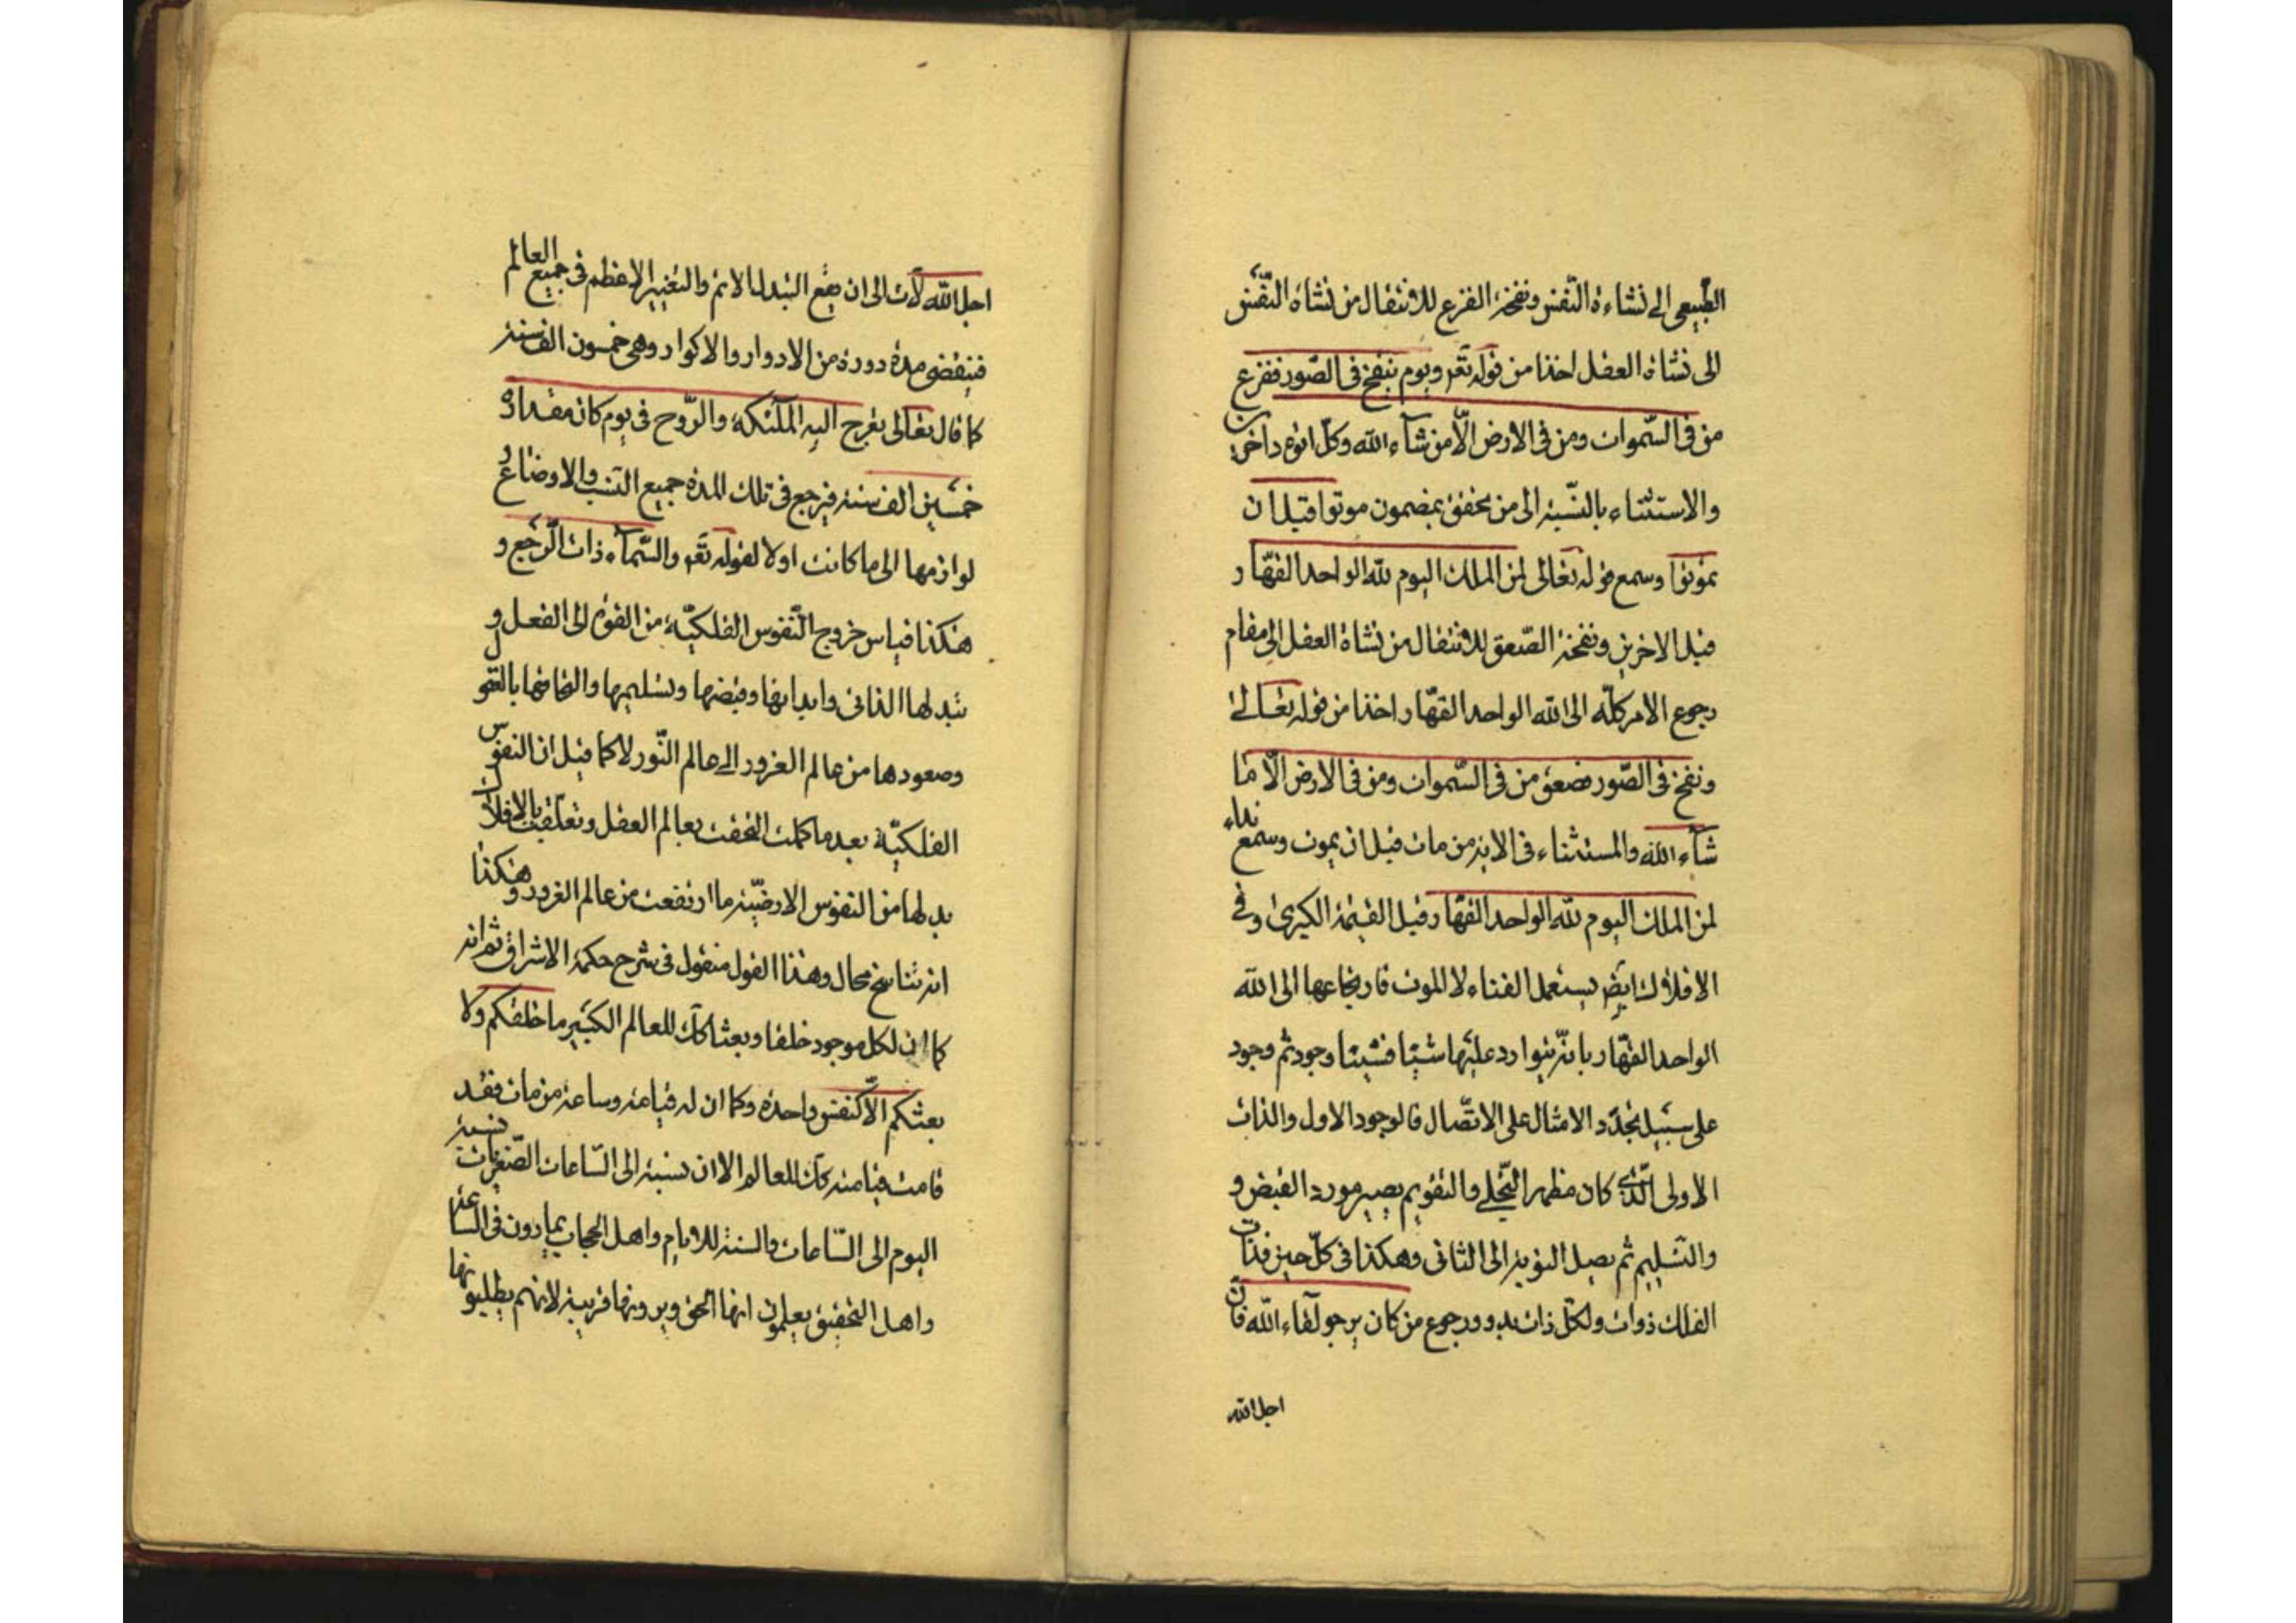 الطبيعى الى نشاءة النفس ونفخة الفزع للانتقال من نشاة النفس
الى نشاة العقل اخذا من قوله تعہ ويوم ينفخ فى الصور ففزع
من فى السموات ومن فى الارض الّا من شآء الله وكلّ اتوه داخرين
والاستثناء بالنسبة الى من تحقق بمضمون موتوا قبل ان
تموتوا وسمع قوله تعالى لمن الملك اليوم لله الواحد القهّار
قبل الاخرين ونفخة الصعق للانتقال من نشاة العقل الى مقام
رجوع الامر كلّه الى الله الواحد القهّار اخذا من قوله تعالى
ونفخ فى الصّور فصعق من فى السّموات ومن فى الارض الّا ما
شآء الله والمستثناء فى الاية من مات قبل ان يموت وسمع نداء
لمن الملك اليوم لله الواحد القهّار قبل القيمة الكبرى وفى
الافلاك ايضا يستعمل الفناء لا الموت فارتجاعها الى الله
الواحد القهّار بانّه يتوارد عليها شيئا فشيئا وجود ثم وجود
على سبيل تجدّد الامثال على الاتّصال فالوجود الاول والذات
الاولى الّذى كان مظهر التجلى والتقويم يصير مورد القبض و
والتسليم ثم يصل النوبة الى الثانى وهكذا فى كلّ حين فذات
الفلك ذوات ولكلّ ذات بدو ورجوع من كان يرجو لقآء الله فانّ
اجل الله
اجل الله لآت الى ان يقع التبدل الاتم والتغيير الاعظم فى جميع العالم
فينقضى مدة دورة من الادوار والاكوار وهى خمسون الف سنة
كما قال تعالى تعرج اليه الملٓئكة والرّوح فى يوم كان مقداره
خمسين الف سنة فيرجع فى تلك المدة جميع النسب والاوضاع و
لوازمها الى ما كانت اولا لقوله تعہ والسّمآء ذات الرّجع و
هكذا قياس خروج النّفوس الفلكيّة من القوة الى الفعل و
تبدلها الذاتى وابدانها وقبضها وتسليمها والتحاقها بالعقول
وصعودها من عالم الغرور الى عالم النّور لا كما قيل ان النفوس
الفلكيّة بعد ما كملت التحقت بعالم العقل وتعلّقت بالافلاك
بدلها من النفوس الارضيّة ما ارتفعت من عالم الغرور وهكذا
انه تناسخ محال وهذا القول منقول فى شرح حكمة الاشراق ثم انه
كما ان لكل موجود خلقا وبعثا كك للعالم الكبير ما خلقكم ولا
بعثكم الّا كنفس واحدة وكما ان له قيامة وساعة من مات فقد
قامت قيامته كك للعالم الا ان نسبته الى السّاعات الصّغريات نسبة
اليوم الى السّاعات والسنة للايام واهل الحجاب يمارون فى الساعة
واهل التحقيق يعلمون انها الحق ويرونها قريبة لانهم يطلبونها